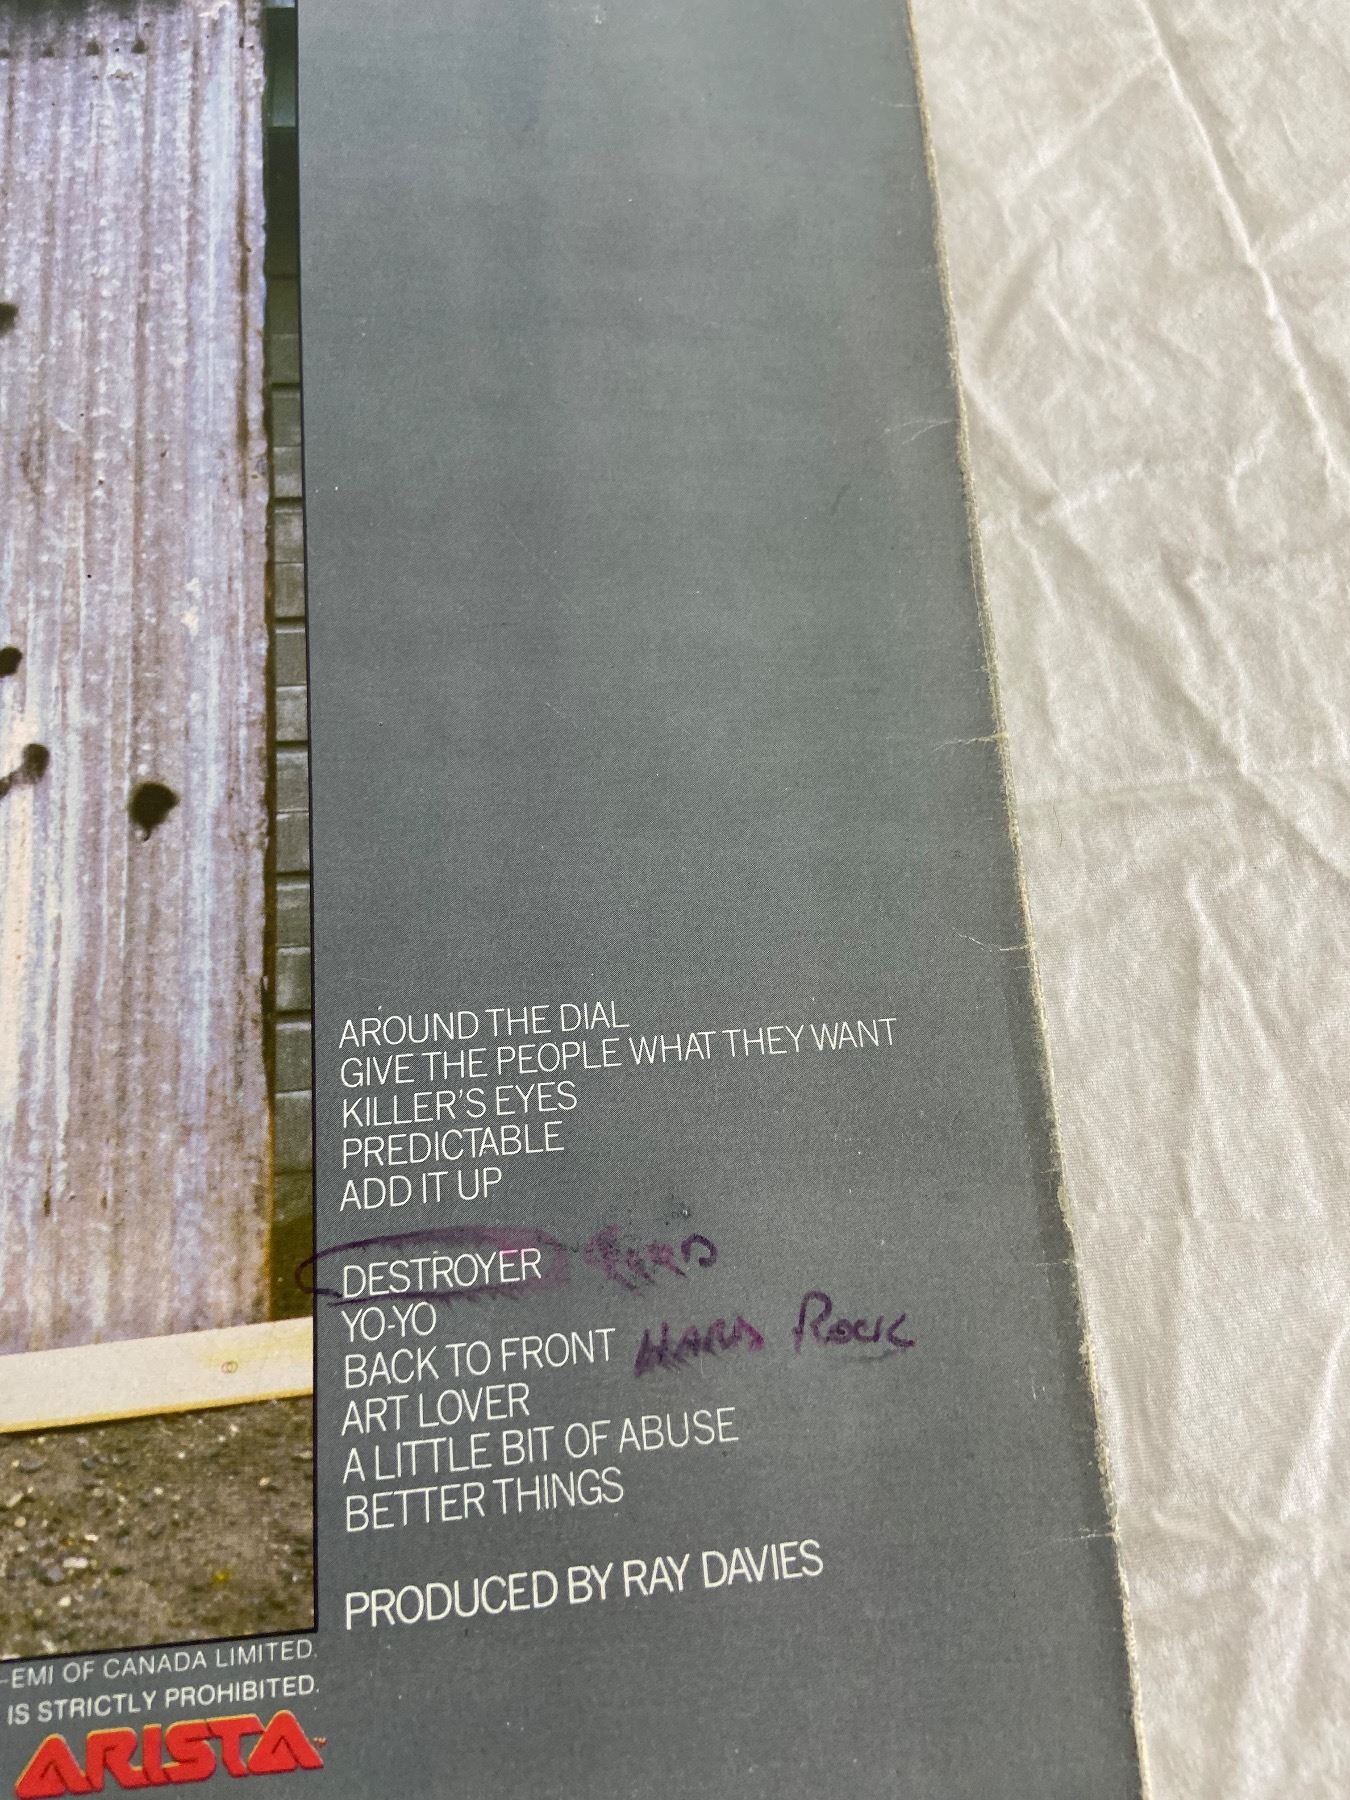 AROUND THE DIAL
GIVE THE PEOPLE WHAT THEY WANT
KILLER'S EYES
PREDICTABLE
ADD IT UP
DESTROYER
YO-YO
BACK TO FRONT HARD ROCK
ART LOVER
A LITTLE BIT OF ABUSE
BETTER THINGS
PRODUCED BY RAY DAVIES
-EMI OF CANADA LIMITED.
IS STRICTLY PROHIBITED.
ARISTA™